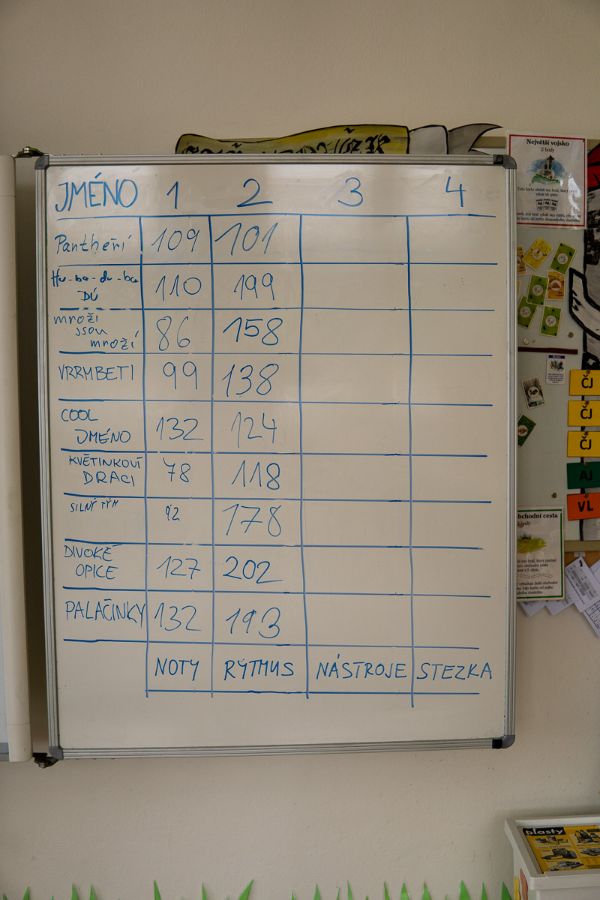 JMÉNO 1 2 3 4
Pantheři 109 101
Hu-ba-du-ba
DŮ 110 199
mroži
jsou
mroží 86 158
VRRMBETI 99 138
COOL
JMÉNO 132 124
KVĚTINKOVÍ
DRACI 78 118
SILNÝ TÝM 92 178
DIVOKÉ
OPICE 127 202
PALAČINKY 132 193
NOTY RYTMUS NÁSTROJE STEZKA
Největší vojsko
2 body
ČJ
ČJ
ČJ
AJ
VL
bchodní cesta